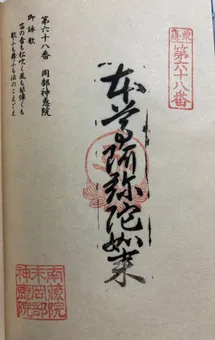 第六十八番
本尊阿弥陀如来
第六十八番　岡部神恵院
御詠歌
笛の音も松吹く風も琴弾くも
歌ふも舞ふも法のこえごえ
南蔵院
末岡部
神恵院